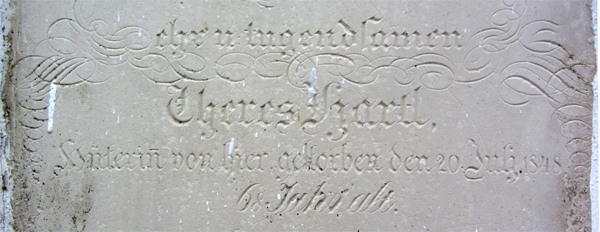 ehr u. tugendsamen
Theres Hartl,
Hüterin̄ von hier, gestorben den 20. July, 1848.
68 Jahr alt.